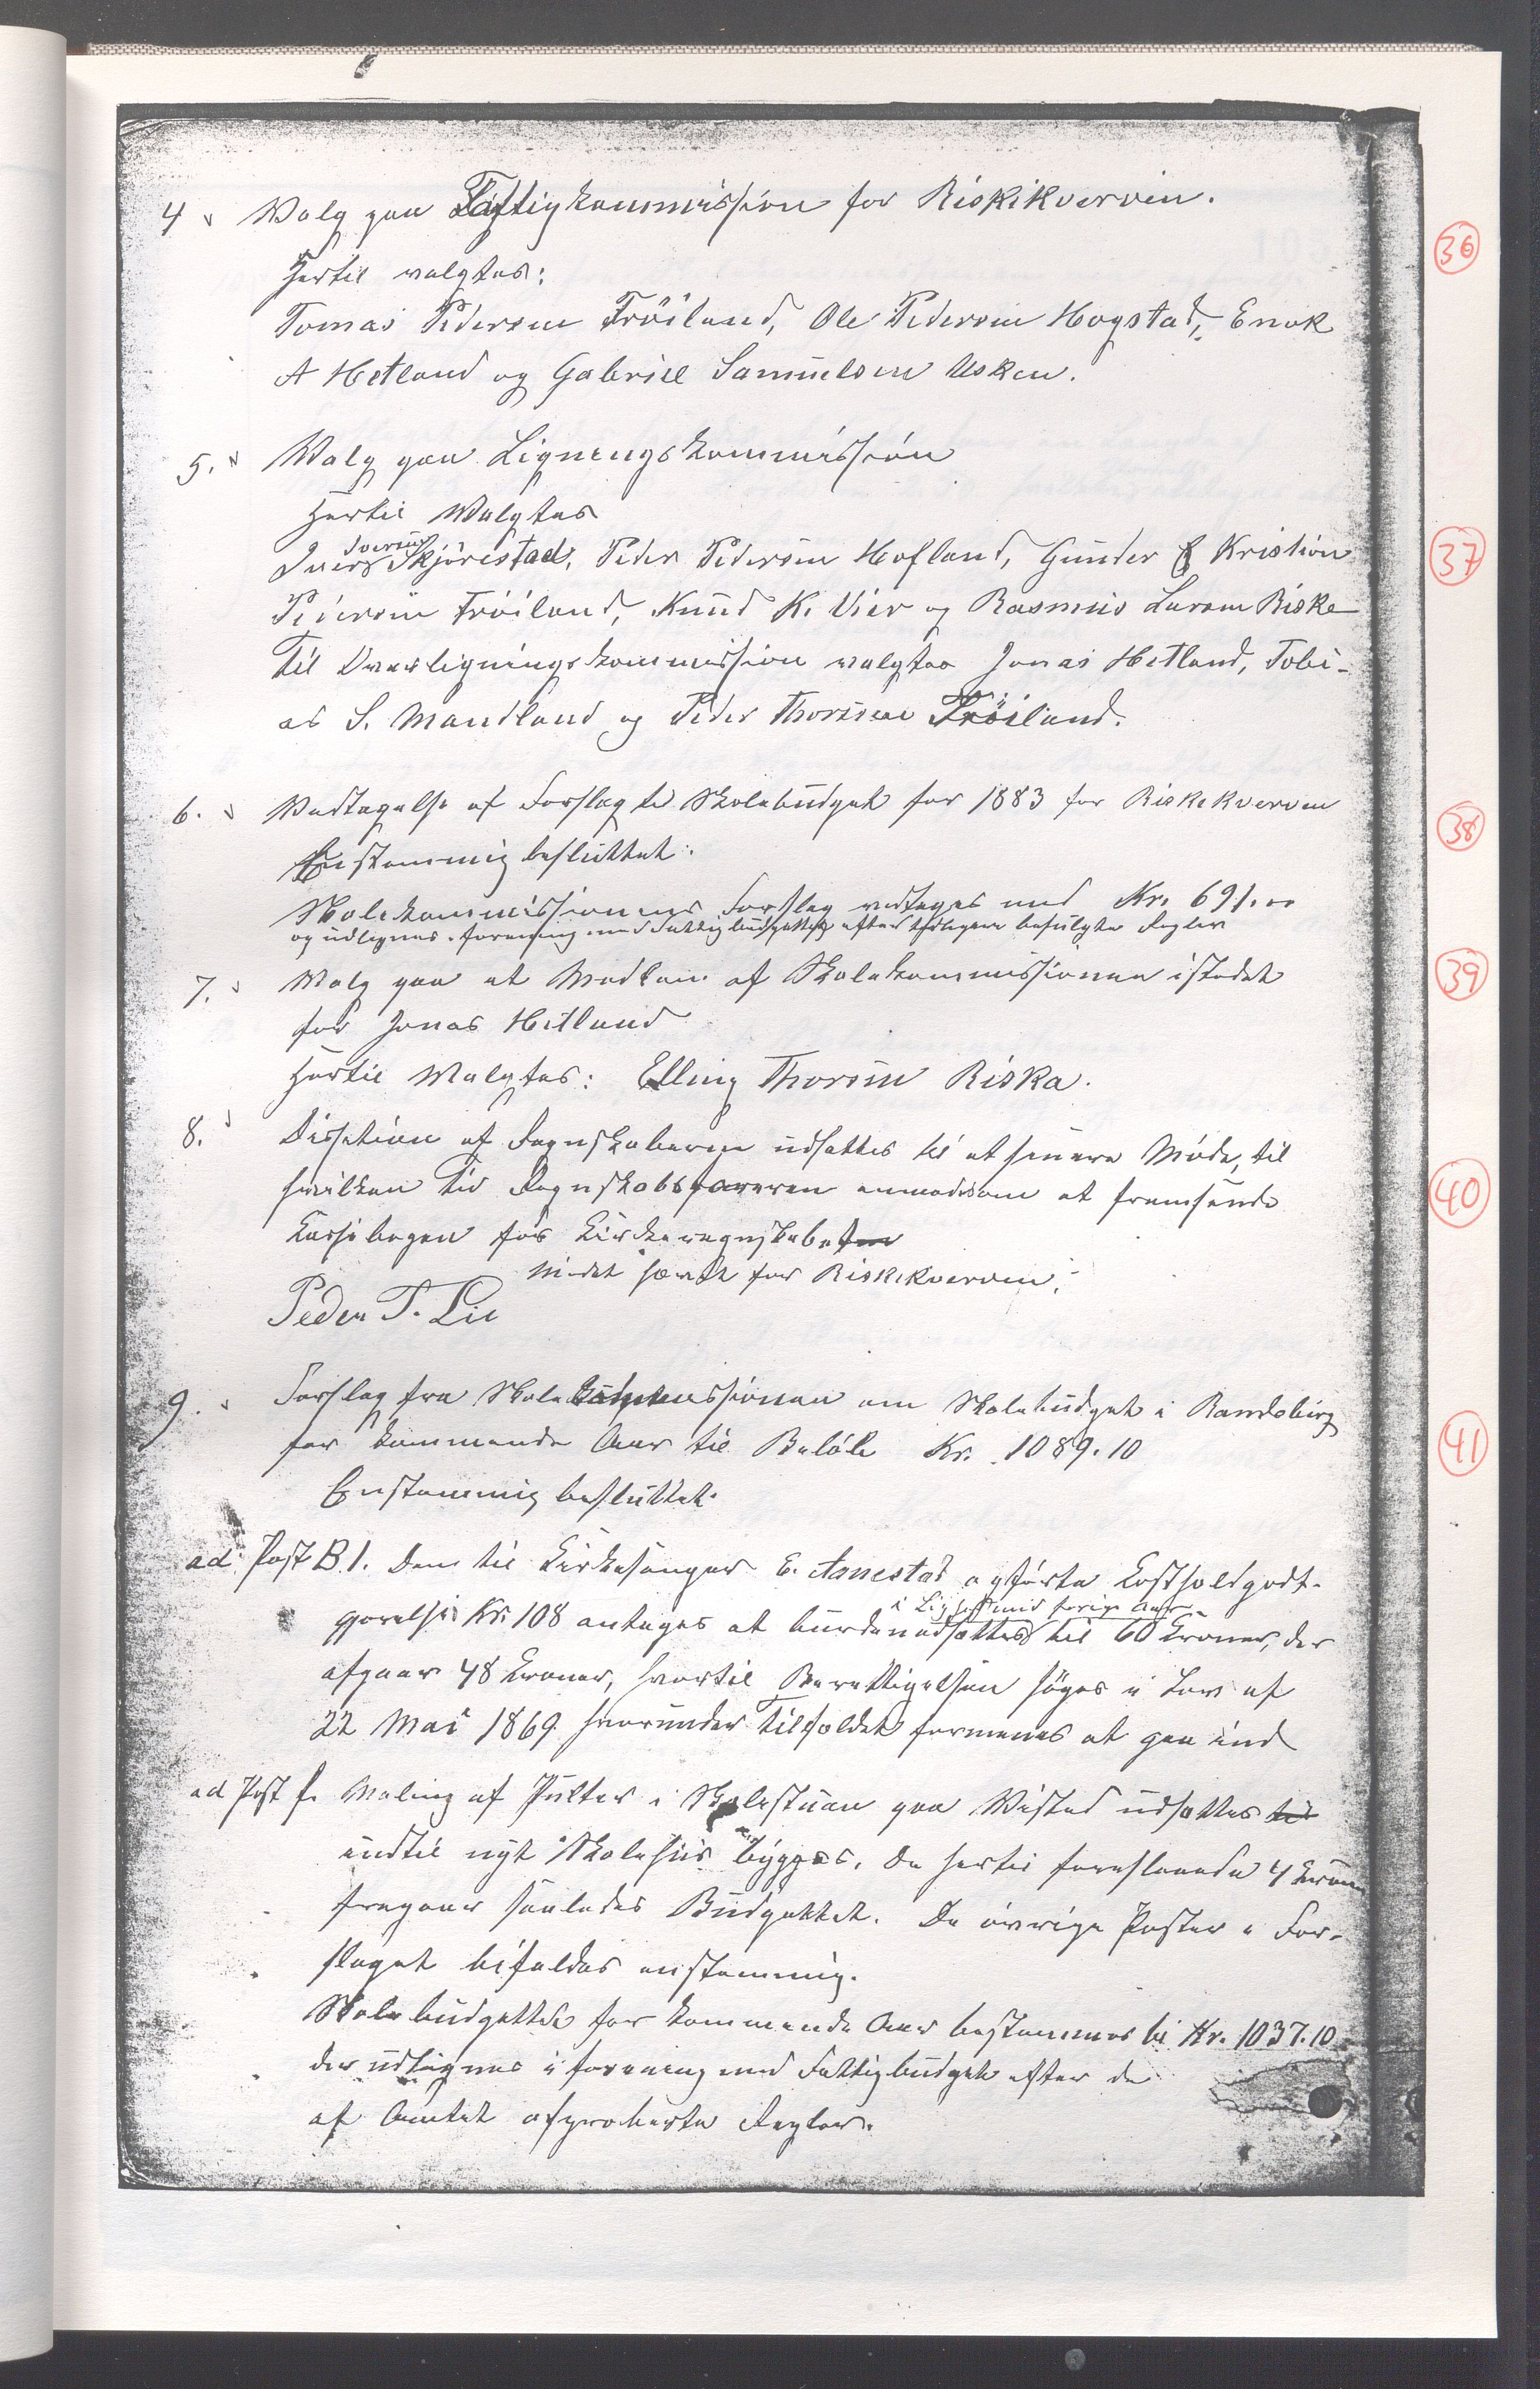 4 Valg paa Fattigkommission for Riskekverven.
36
Hertil valgtes:
Tomas Pedersen Fröiland, Ole Pedersen Hogstad, Enok
A Hetland og Gabriel Samuelsen Usken.
5. Valg paa Ligningskommission
Hertil Valgtes
Iversen
Iver Skjörestad, Peder Pedersen Hofland, Gunder Kristian
37
Pedersen Fröiland, Knud K. Lier og Rasmus Larsen Riske
Til Overligningskommission valgtes Jonas Hetland, Tobi-
as S. Mandland og Peder Thorsen Fröiland.
6. Vedtagelse af Forslag til Skolebudget for 1883 for Riskekverven
38
Enstemmig besluttet:
Skolekommissionens Forslag vedtages med Kr. 691.00
og udlignes i forening med Fattigbudgettet efter tidligere befulgte Regler
7. Valg paa et Medlem af Skolekommissionen istedet
39
for Jonas Hetland
Hertil Valgtes: Elling Thorsen Riska.
8. Desition af Regnskaberne udsættes til et senere Möde, til
hvilken Tid Regnskabsföreren anmodes om at fremsende
40
Kassebogen for Kirkeregnskabet
Mödet hævet for Riskekverven.
Peder T. Lie
9. Forslag fra Skolekommissionen om Skolebudget i Randeberg
41
for kommende Aar til Beløb Kr. 1089.10
Enstemmig besluttet:
ad Post B.1. Den til Kirkesanger E. Annestad opførte Kostholdgodt-
i Lighed med forige Aar
gjørelse Kr. 108 antages at burde nedsættes til 60 Kroner, der
afgaar 48 Kroner, hvortil Berettigelsen søges i Lov af
22 Mai 1869 hvorunder Tilfældet formenes at gaa ind
ad Post f. Maling af Pulter i Skolestuen paa Visted udsættes til
indtil nyt Skolehus bygges. De hertil foreslaaede 4 Kroner
fragaar saaledes Budgettet. De øvrige Poster i For-
slaget bifaldes enstemmig.
Skolebudgettet for kommende Aar bestemmes til Kr. 1037.10
der udlignes i forening med Fattigbudget efter de
af Amtet approberte Regler.